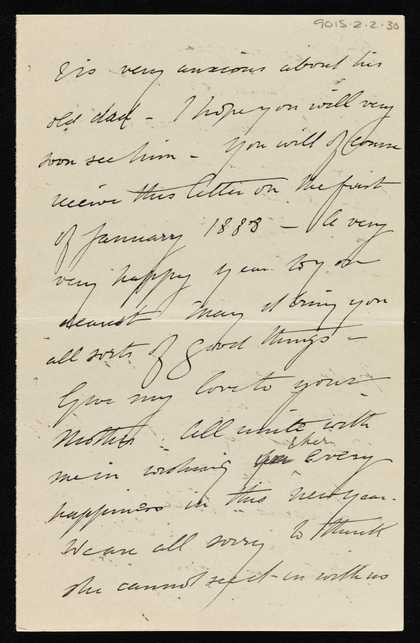 9015-2-2-30
& is very anxious about his
old dad - I hope you will very
soon see him - You will of course
receive this letter on the first
of January 1888 - A very
very happy year to you
dearest may it bring you
all sorts of good things -
Give my love to your
Mother. All unite with
me in wishing you & her every
happiness in this new year.
We are all sorry to think
she cannot see it in with us